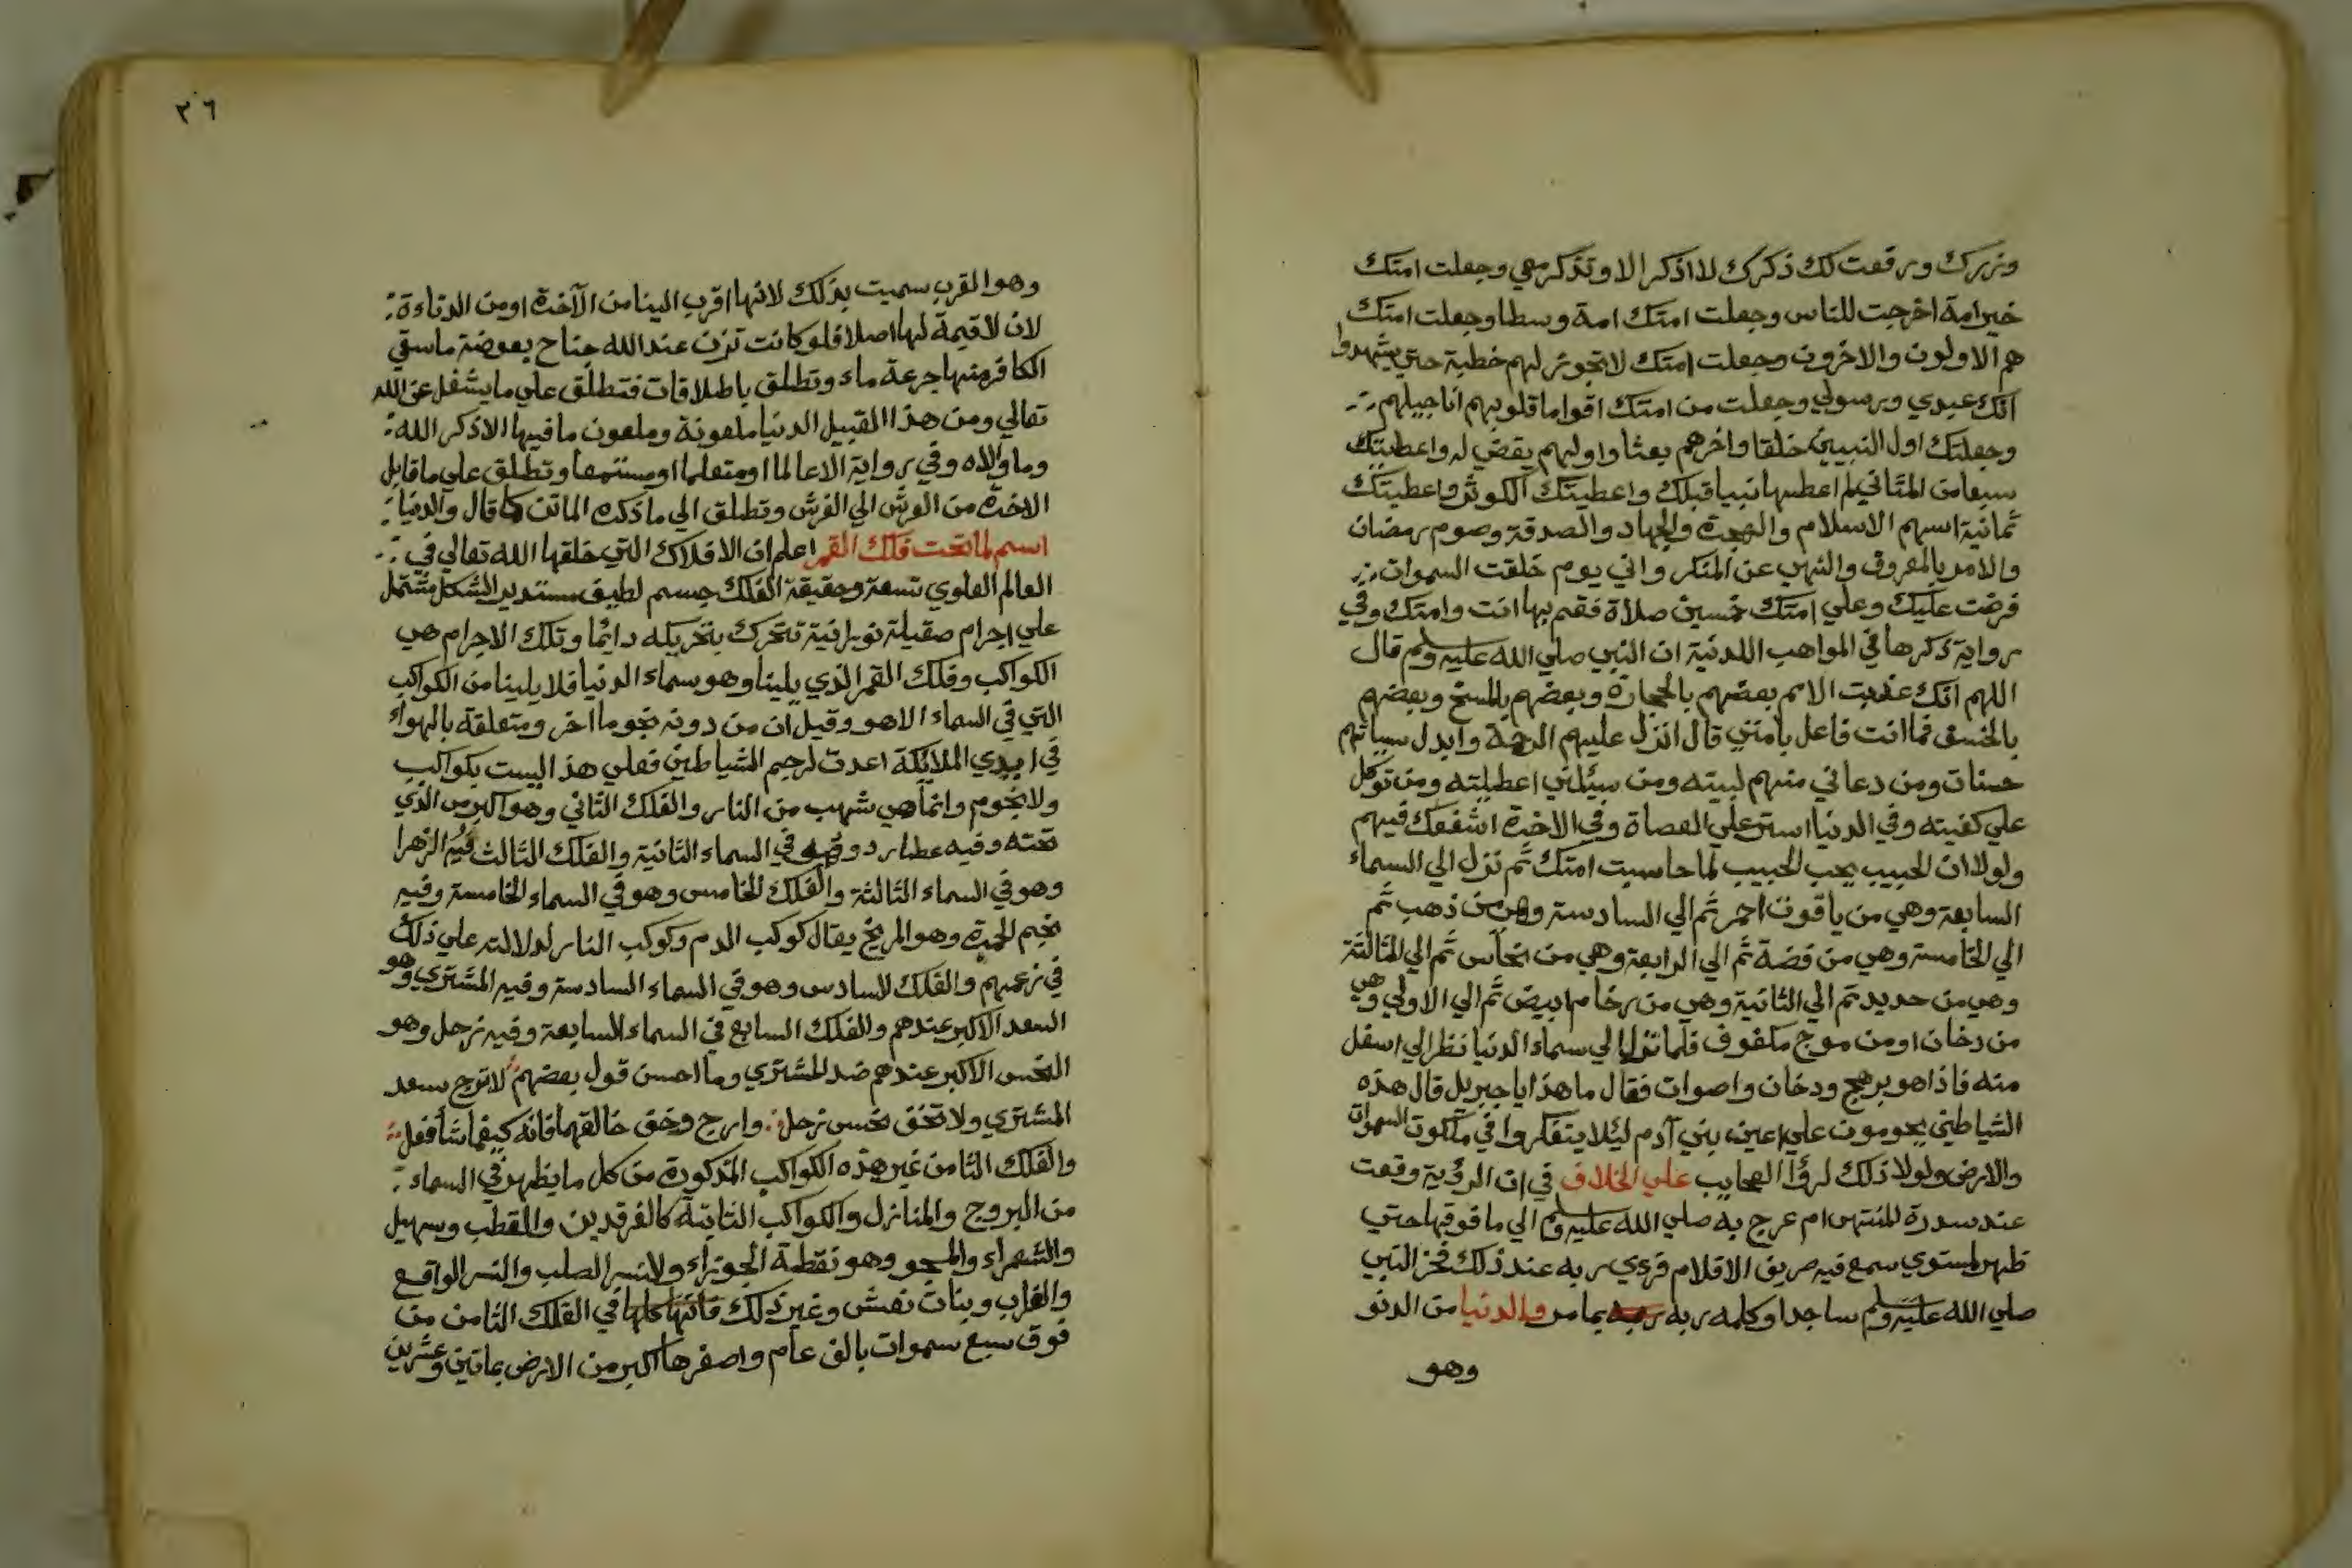 وزرك ورفعت لك ذكرك لا اذكر الا وتذكر معي وجعلت امتك
خير امة اخرجت للناس وجعلت امتك امة وسطا وجعلت امتك
هم الاولون والاخرون وجعلت امتك لا تجوز لهم خطبة حتي يشهدوا
انك عبدي ورسولي وجعلت من امتك اقواما قلوبهم اناجيلهم
وجعلتك اول النبيين خلقا واخرهم بعثا واولهم يقضي له واعطيتك
سبعا من المثاني لم اعطها نبيا قبلك واعطيتك الكوثر واعطيتك
ثمانية اسهم الاسلام والهجرة والجهاد والصدقة وصوم رمضان
والامر بالمعروف والنهي عن المنكر واني يوم خلقت السموات
فرضت عليك وعلي امتك خمسين صلاة فقم بها انت وامتك وفي
رواية ذكرها في المواهب اللدنية ان النبي صلي الله عليه وسلم قال
اللهم انك عذبت الامم بعضهم بالحجارة وبعضهم بالمسخ وبعضهم
بالخسف فما انت فاعل بامتي قال انزل عليهم الرحمة وابدل سياتهم
حسنات ومن دعاني منهم لبيته ومن سيئلني اعطيته ومن توكل
علي كفيته وفي الدنيا استر علي العصاة وفي الاخرة اشفعك فيهم
ولولا ان الحبيب يحب الحبيب لما حاسبت امتك ثم نزل الي السماء
السابعة وهي من ياقوت احمر ثم الي السادسة وهي من ذهب ثم
الي الخامسة وهي من فضة ثم الي الرابعة وهي من نحاس ثم الي الثالثة
وهي من حديد ثم الي الثانية وهي من رخام ابيض ثم الي الاولي وهي
من دخان او من موج مكفوف فلما نزل الي سماء الدنيا نظر الي اسفل
منه فاذا هو برهج ودخان واصوات فقال ما هذا يا جبريل قال هذه
الشياطين يحومون علي اعين بني آدم ليئلا يتفكروا في ملكوت السموات
والارض ولولا ذلك لرؤا العجايب علي الخلاف في ان الرؤية وقعت
عند سدرة المنتهي ام عرج به صلي الله عليه وسلم الي ما فوقها حتي
ظهر لمستوي سمع فيه صريف الاقلام فرءي ربه عند ذلك فخر النبي
صلي الله عليه وسلم ساجدا وكلمه ربه بما مر والدنيا من الدنو
وهو
٣٦
وهو القرب سميت بذلك لانها اقرب الينا من الآخرة او من الدناءة
لان لا قيمة لها اصلا فلو كانت تزن عند الله جناح بعوضة ما سقي
الكافر منها جرعة ماء وتطلق باطلاقات فتطلق علي ما يشغل عن الله
تعالي ومن هذا القبيل الدنيا ملعونة وملعون ما فيها الا ذكر الله
وما والاه وفي رواية الا عالما او متعلما او مستمعا وتطلق علي ما قابل
الاخرة من العرش الي الفرش وتطلق الي ما ذكره الماتن كما قال والدنيا
اسم لما تحت فلك القمر اعلم ان الافلاك التي خلقها الله تعالي في
العالم العلوي تسعة وحقيقة الفلك جسم لطيف مستدير الشكل مشتمل
علي اجرام صقيلة نورانية تتحرك بتحريكه دائما وتلك الاجرام هي
الكواكب وفلك القمر الذي يلينا وهو سماء الدنيا فلا يلينا من الكواكب
التي في السماء الا هو وقيل ان من دونه نجوما اخر ومتعلقة بالهواء
في ايدي الملائكة اعدت لرجم الشياطين فعلي هذا ليست بكواكب
ولا نجوم وانما هي شهب من النار والفلك الثاني وهو اكبر من الذي
تحته وفيه عطارد وهو في السماء الثانية والفلك الثالث فيه الزهرا
وهو في السماء الثالثة والفلك الخامس وهو في السماء الخامسة وفيه
نجم الحمرة وهو المريخ يقال كوكب الدم وكوكب النار لدلالته علي ذلك
في زعمهم والفلك السادس وهو في السماء السادسة وفيه المشتري وهو
السعد الاكبر عندهم والفلك السابع في السماء السابعة وفيه زحل وهو
النحس الاكبر عندهم ضد المشتري وما احسن قول بعضهم لا ترج سعد
المشتري ولا تخف نحس زحل وارج وخف خالقهما فانه كيفما شا فعل
والفلك الثامن غير هذه الكواكب المذكورة من كل ما يظهر في السماء
من البروج والمنازل والكواكب الثابتة كالفرقدين والقطب وسهيل
والشعراء والمجو وهو نقطة الجوزاء ولانسر الصلب والنسر الواقع
والغراب وبنات نعش وغير ذلك فانها كلها في الفلك الثامن من
فوق سبع سموات بالف عام واصغرها اكبر من الارض بماتين وعشرين